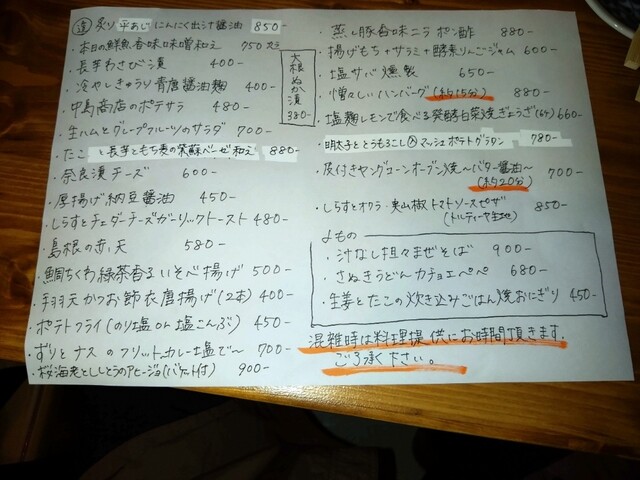 炙り 平あじ にんにく出汁醤油 850-
・本日の鮮魚香味味噌和え 750
・長芋わさび漬 400-
・冷やしきゅうり青唐醤油麹 400-
・中島商店のポテサラ 480-
・生ハムとグレープフルーツのサラダ 700-
・たこと長芋ともち麦の和え 880-
・奈良漬チーズ 600-
・厚揚げ納豆醤油 450-
・しらすとチェダーチーズガーリックトースト 480-
・島根の赤天 580-
・鯛ちくわ緑茶香るいそべ揚げ 500-
・手羽天かつお節衣唐揚げ(2本) 400-
・ポテトフライ(のり塩 or 塩こんぶ) 450-
・ずりとナスのフリットカレー塩で〜 700-
・桜海老とししとうのアヒージョ(バゲット付) 900-
大根ぬか漬 380-
・蒸し豚香味ニラポン酢 880-
・揚げもち+サラミ+酵素りんごジャム 600-
・塩サバ燻製 650-
・憎々しいハンバーグ(約15分) 880-
・塩麹レモンで食べる発酵白菜焼ぎょうざ(6ケ) 660-
明太子ととうもろこしのマッシュポテトグラタン 780-
・皮付きヤングコーンオーブン焼〜バター醤油〜 700-
(約20分)
・しらすとオクラ・実山椒トマトソースピザ 850-
(トルティーヤ生地)
〆もの
・汁なし担々まぜそば 900-
・さぬきうどんカチョエペペ 680-
・生姜とたこの炊き込みごはん焼おにぎり 450-
混雑時は料理提供にお時間頂きます。
ご了承下さい。